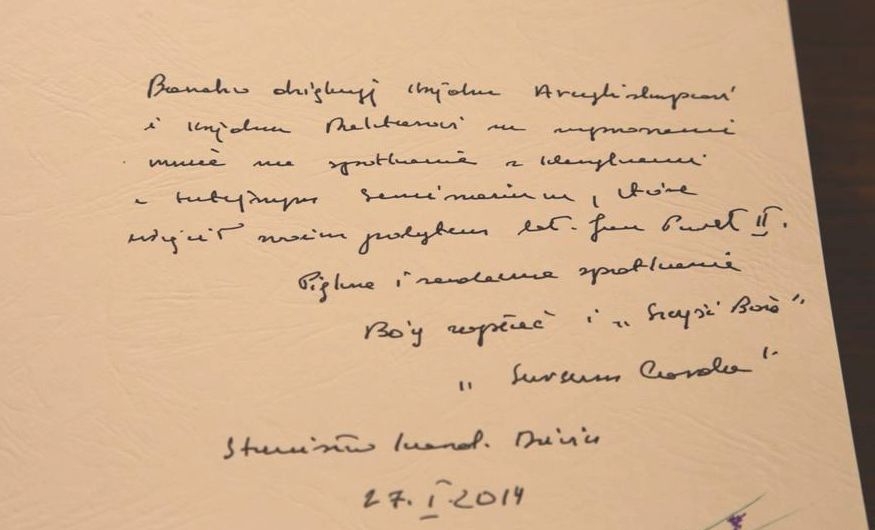 Bardzo dziękuję Księdzu Arcybiskupowi
i Księdzu Rektorowi za zaproszenie
mnie na spotkanie z klerykami
w tutejszym Seminarium, które
swoim pobytem św. Jan Paweł II.
Piękne i radosne spotkanie
Bóg zapłać i „Szczęść Boże”
„Sursum Corda”.
Stanisław kard. Dziwisz
27.I.2014